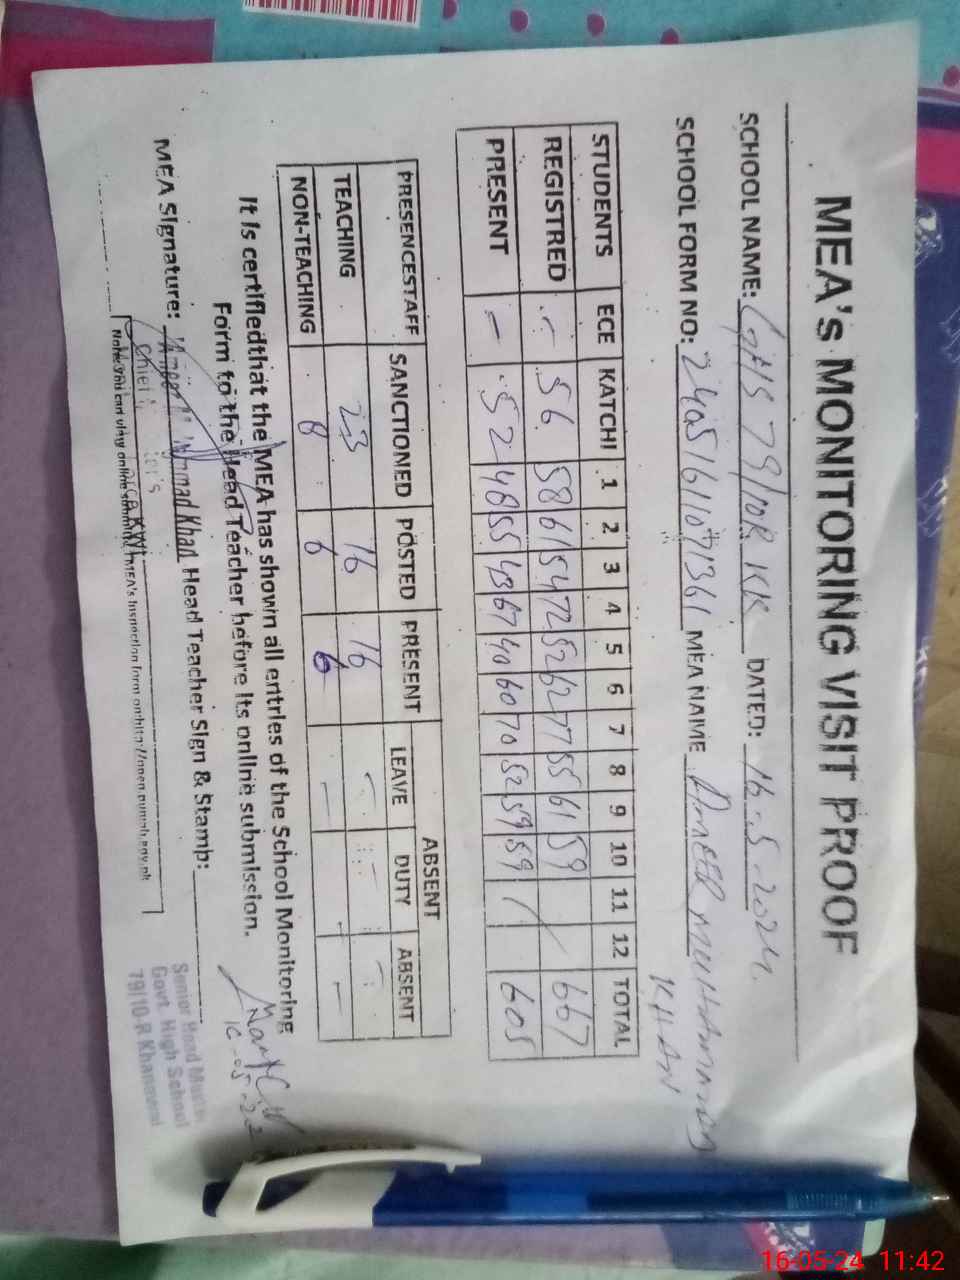 MEA's MONITORING VISIT PROOF
SCHOOL NAME: GHS 79/10R KK DATED: 16-5-2024
SCHOOL FORM NO: MEA NAME AMEER MUHAMMAD
KHAN
STUDENTS ECE KATCHI 1 2 3 4 5 6 7 8 9 10 11 12 TOTAL
REGISTRED - 56 58 61 54 72 52 62 77 55 61 59 667
PRESENT - 52 48 55 43 67 40 60 70 52 59 59 605
PRESENCESTAFF SANCTIONED POSTED PRESENT ABSENT
LEAVE DUTY ABSENT
TEACHING 23 16 16 - - -
NON-TEACHING 8 6 6 - - -
It is certifiedthat the MEA has shown all entries of the School Monitoring
Form to the Head Teacher before its online submission.
MEA Signature: Head Teacher Sign & Stamp:
Ameer Muhammad Khan
Senior Head Master
Govt. High School
79/10-R Khanewal
16-05-24 11:42